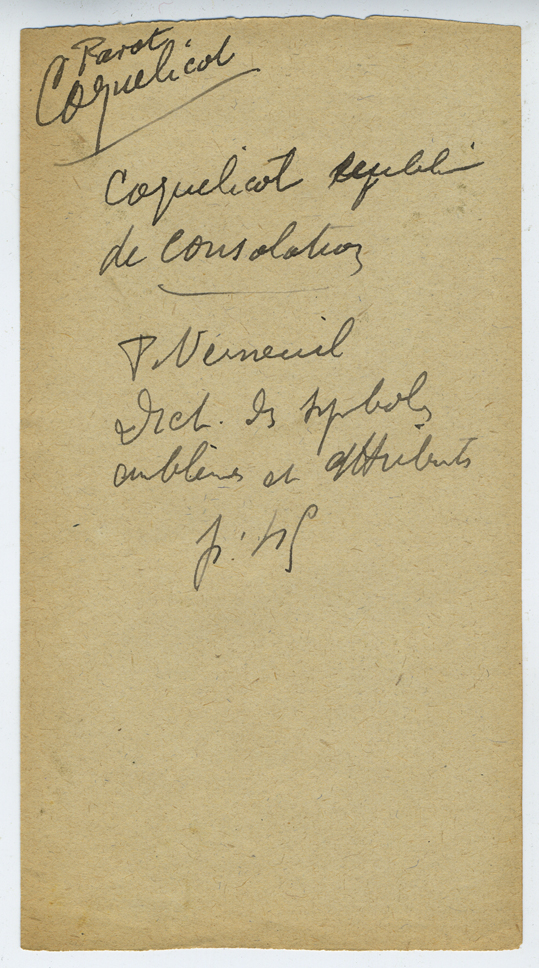 Pavot
Coquelicot
Coquelicot
de consolation
P. Verneuil
Dict. des symboles
emblèmes et attributs
p.